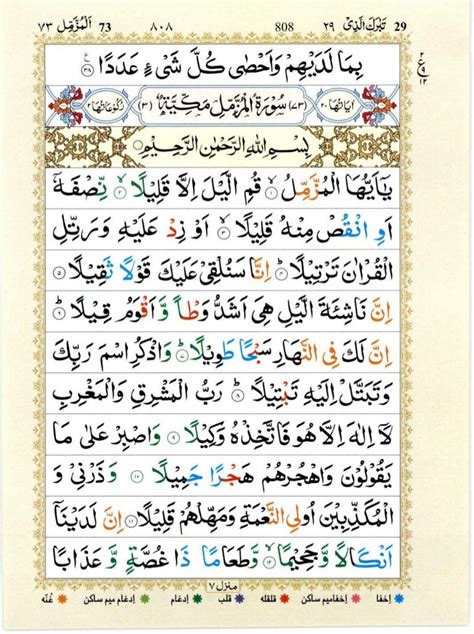 29 تَبٰرَكَ الَّذِیْ ٢٩ 808 ٨٠٨ 73 اَلْمُزَّمِّل ٧٣
بِمَا لَدَیْهِمْ وَاَحْصٰی كُلَّ شَیْءٍ عَدَدًا ۟ ٢٨
اٰیَاتُهَا ٢٠ (٧٣) سُوْرَةُ الْمُزَّمِّلِ مَكِّیَّةٌ (٣) رُكُوْعَاتُهَا ٢
بِسْمِ اللّٰهِ الرَّحْمٰنِ الرَّحِیْمِ
یٰۤاَیُّهَا الْمُزَّمِّلُ ۙ ١ قُمِ الَّیْلَ اِلَّا قَلِیْلًا ۙ ٢ نِّصْفَهٗۤ
اَوِ انْقُصْ مِنْهُ قَلِیْلًا ۙ ٣ اَوْ زِدْ عَلَیْهِ وَرَتِّلِ
الْقُرْاٰنَ تَرْتِیْلًا ؕ ٤ اِنَّا سَنُلْقِیْ عَلَیْكَ قَوْلًا ثَقِیْلًا ٥
اِنَّ نَاشِئَةَ الَّیْلِ هِیَ اَشَدُّ وَطْاً وَّاَقْوَمُ قِیْلًا ؕ ٦
اِنَّ لَكَ فِی النَّهَارِ سَبْحًا طَوِیْلًا ؕ ٧ وَاذْكُرِ اسْمَ رَبِّكَ
وَتَبَتَّلْ اِلَیْهِ تَبْتِیْلًا ؕ ٨ رَبُّ الْمَشْرِقِ وَالْمَغْرِبِ
لَاۤ اِلٰهَ اِلَّا هُوَ فَاتَّخِذْهُ وَكِیْلًا ٩ وَاصْبِرْ عَلٰی مَا
یَقُوْلُوْنَ وَاهْجُرْهُمْ هَجْرًا جَمِیْلًا ١٠ وَذَرْنِیْ وَ
الْمُكَذِّبِیْنَ اُولِی النَّعْمَةِ وَمَهِّلْهُمْ قَلِیْلًا ١١ اِنَّ لَدَیْنَاۤ
اَنْكَالًا وَّجَحِیْمًا ۙ ١٢ وَّطَعَامًا ذَا غُصَّةٍ وَّعَذَابًا
منزل ٧
اِخفا اِخفامیم ساکن قلقله قلب اِدغام اِدغام میم ساکن غُنّه